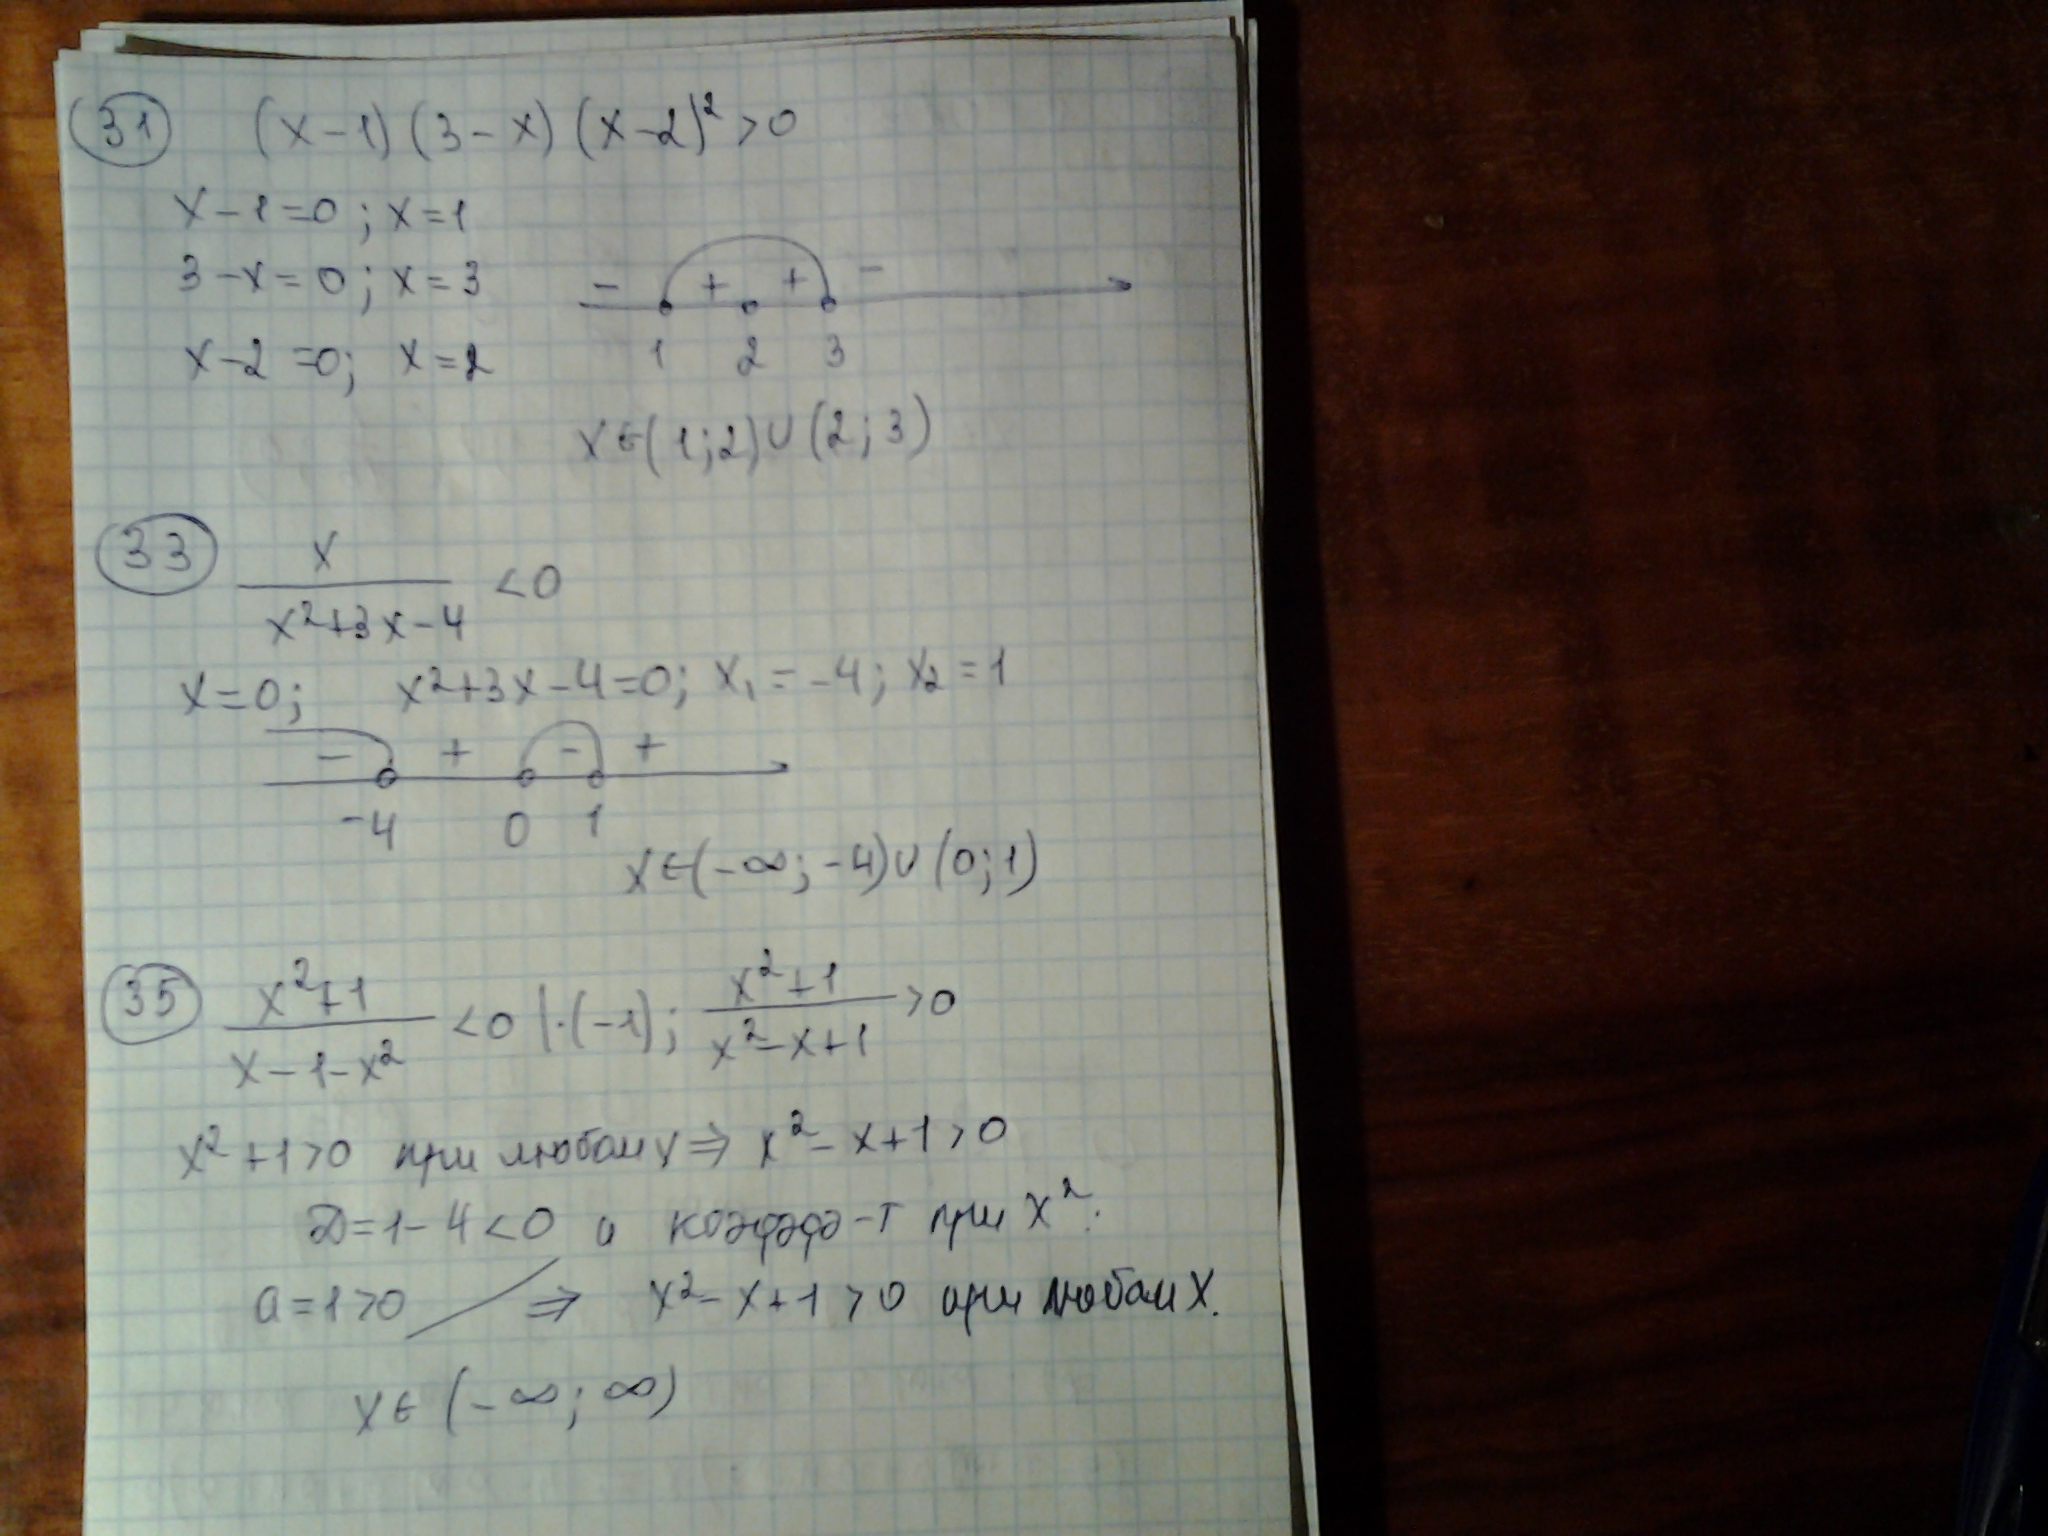 31 (x-1)(3-x)(x-2)²>0
x-1=0; x=1
3-x=0; x=3
- + + -
x-2=0; x=2
1 2 3
x∈(1;2)∪(2;3)
33 x/(x²+3x-4) <0
x=0; x²+3x-4=0; x₁=-4; x₂=1
- + - +
-4 0 1
x∈(-∞;-4)∪(0;1)
35 (x²+1)/(x-1-x²) <0 |·(-1); (x²+1)/(x²-x+1) >0
x²+1>0 при любом x ⇒ x²-x+1>0
D=1-4<0 и коэфф-т при x²:
a=1>0 ⇒ x²-x+1>0 при любом x.
x∈(-∞;∞)